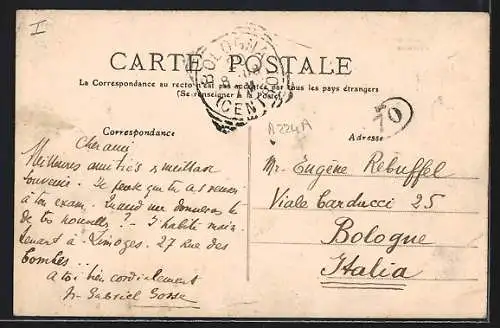 I
CARTE POSTALE
La Correspondance au recto n'est pas acceptée par tous les pays étrangers
(Se renseigner à la Poste)
BOLOGNA
(CENTRO)
70
A224A
Correspondance
Adresse
Cher ami
Meilleures amitiés & meilleur
souvenir. Je pense que tu as réussi
à ton exam. Quand me donneras tu
de tes nouvelles ? - J'habite main-
tenant à Limoges. 27 Rue des
Combes.
à toi bien cordialement
Gabriel
Mr. Eugène Rebuffel
Viale Carducci 25
Bologne
Italia